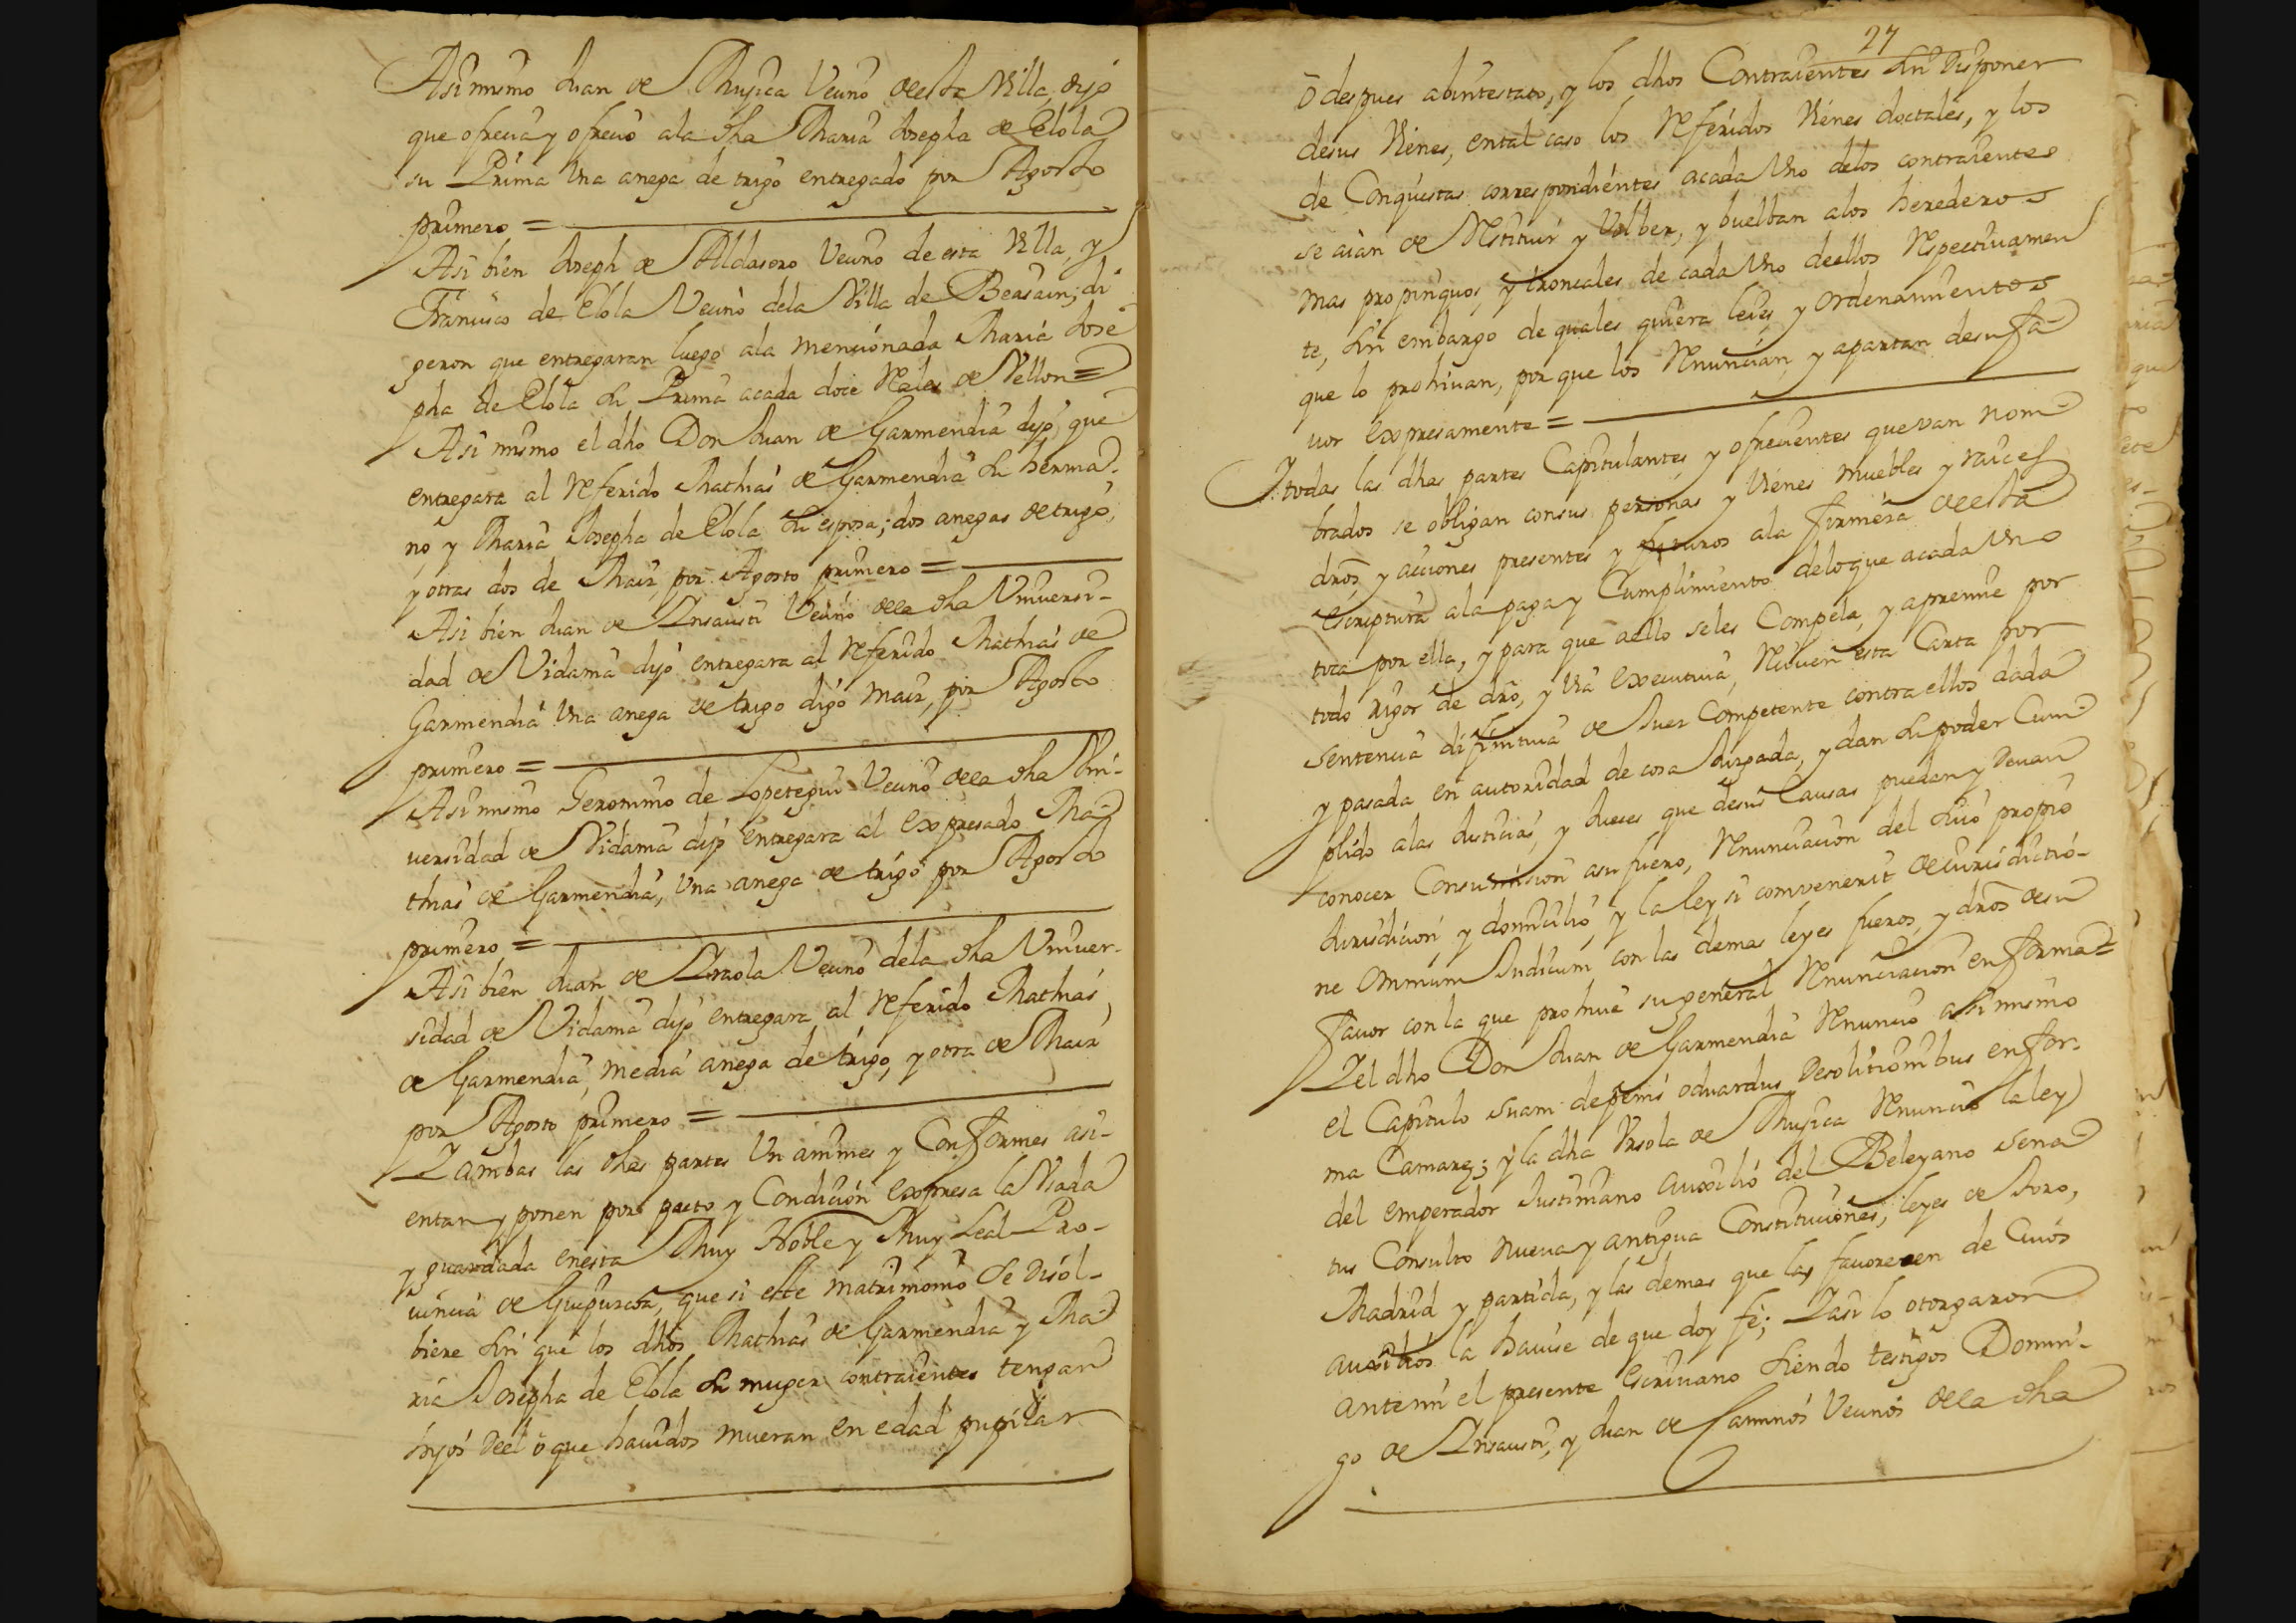 Asimismo Juan de Mujica Vecino de esta Villa, dijo
que ofrecia y ofrecio ala dha Maria Josepha de Elola
su Prima Vna anega de trigo entregado por Agosto
primero =
Asi bien Joseph de Aldasoro Vecino de esta Villa, y
Francisco de Elola Vecino dela Villa de Beasain; di
geron que entregaran luego ala mencionada Maria Jose
pha de Elola su Prima acada doce Reales de Vellon =
Asi mismo el dho Don Juan de Garmendia dijo que
entregara al Referido Mathias de Garmendia su herma-
no, y Maria Josepha de Elola su esposa; dos anegas de trigo,
y otras dos de Maiz, por Agosto primero =
Asi bien Juan de Insausti Vecino de la dha Vniversi-
dad de Vidania dijo entregara al Referido Mathias de
Garmendia Vna anega de trigo digo maiz, por Agosto
primero =
Asimismo Geronimo de Lopetegui Vecino de la dha Vni-
versidad de Vidania dijo entregara al Expresado Ma-
thias de Garmendia, Vna anega de trigo por Agosto
primero =
Asi bien Juan de Iraola Vecino dela dha Vniver-
sidad de Vidania dijo entregara al Referido Mathias
de Garmendia, media anega de trigo, y otra de Maiz
por Agosto primero =
I ambas las dhas partes Vnanimes y Conformes asi-
entan y ponen por pacto y Condicion expresa la Vsada
y guardada enesta Muy Noble y Muy Leal Pro-
vincia de Guipuzcoa, que si este matrimonio se disol-
biere sin que los dhos Mathias de Garmendia y Ma-
ria Josepha de Elola su muger contraientes tengan
hijos deel o que havidos mueran en edad pupilar
27
o despues abintestato, y los dhos Contraientes sin Disponer
desus Vienes, ental caso los Referidos Vienes doctales, y los
de Conquistas correspondientes acada Vno delos contraientes
se aian de Restituir y Volber, y buelban alos herederos
mas propinquos, y tronçales de cada Vno deellos Respectivamen
te, sin embargo de quales quiera leies, y ordenamientos
que lo prohivan, por que los Renuncian, y apartan desu fa-
vor Expresamente =
I todas las dhas partes Capitulantes, y ofrecientes quevan nom-
brados se obligan consus personas y Vienes muebles y raices
dros, y acciones presentes y futuros ala firmeza de esta
Escriptura ala paga y Cumplimiento deloque acada Vno
toca por ella, y para que aello seles Compela, y apremie por
todo rigor de dro, y Via Executiva, Reciven esta Carta por
sentencia difinitiva de Juez Competente contra ellos dada
y pasada en autoridad de cosa Juzgada, y dan su poder Cum-
plido alas Justicias, y Jueces que desus Causas puedan y devan
conocer Consumision asu fuero, Renunciacion del suio propio
Jurisdicion, y domicilio, y la ley si convenerit de iurisdictio-
ne Omnium Iudicum con las demas leyes fueros, y dros de su
favor con la que prohive su general Renunciacion en forma =
I el dho Don Juan de Garmendia Renuncio asi mismo
el Capitulo suam depenis oduardus Desolutionibus en for-
ma Camare; y la dha Vrsola de Mujica Renuncio la ley
del emperador Justiniano auxilio del Beleyano Sena
tus Consulto nueva y antigua Constituciones, leyes de Toro,
Madrid y partida, y las demas que las favorecen de Cuios
auxilios la havise de que doy fe; I asi lo otorgaron
antemi el presente Escrivano siendo testigos Domin-
go de Insausti, y Juan de Caminos Vecinos de la dha